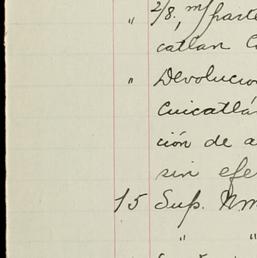 " 2/8, m/ parte
catlan C
" Devolucio
Cuicatlá
ción de a
sin efe
15 Sup. Nm
" "